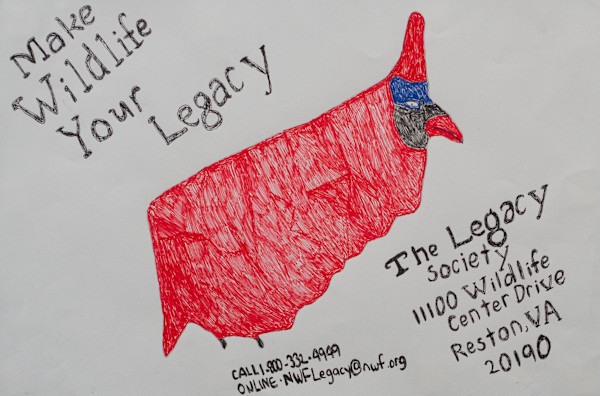 Make
Wildlife
Your Legacy
The Legacy
Society
11100 Wildlife
Center Drive
Reston, VA
20190
CALL 1-800-332-4949
ONLINE-NWFLegacy@nwf.org